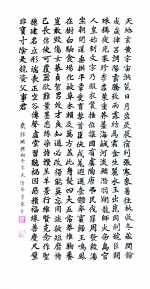 天地玄黃宇宙洪荒日月盈昃辰宿列張寒來暑往秋收冬藏閏餘
成歲律呂調陽雲騰致雨露結為霜金生麗水玉出崑岡劍號巨闕
珠稱夜光果珍李柰菜重芥薑海鹹河淡鱗潛羽翔龍師火帝鳥官
人皇始制文字乃服衣裳推位讓國有虞陶唐弔民伐罪周發殷湯
坐朝問道垂拱平章愛育黎首臣伏戎羌遐邇壹體率賓歸王鳴鳳
在樹白駒食場化被草木賴及萬方蓋此身髮四大五常恭惟鞠養
豈敢毀傷女慕貞絜男效才良知過必改得能莫忘罔談彼短靡恃
己長信使可覆器欲難量墨悲絲染詩讚羔羊景行維賢克念作聖
德建名立形端表正空谷傳聲虛堂習聽禍因惡積福緣善慶尺璧
非寶寸陰是競資父事君